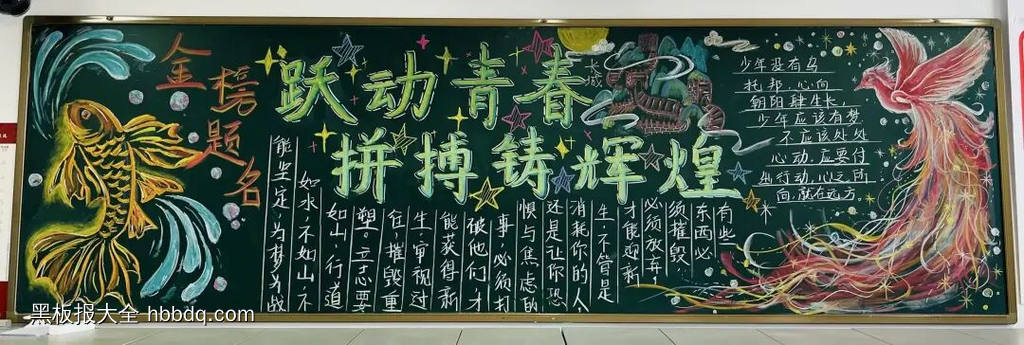 金榜题名
跃动青春
拼搏铸辉煌
长城
少年没有乌
托邦,心向
朝阳肆生长,
少年应该有梦
不应该处处
心动,应要付
出行动,心之所
向,就在远方。
有些
东西必
须摧毁,
必须放弃
才能迎新
生.不管是
消耗你的人,
还是让你恐
惧与焦虑的
事.必须打
破他们.才
能获得新
生.审视过
往.摧毁重
塑.立志要
如山.行道
如水.不如山.不
能坚定.为梦为战
黑板报大全 hbbdq.com